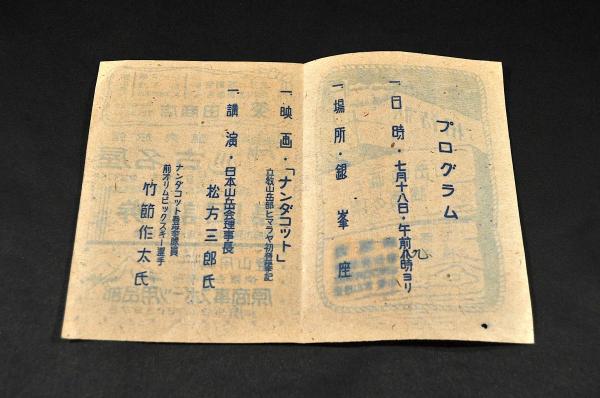 プログラム
一 日時・七月十八日・午前九時ヨリ
一 場所・銀峯座
一 映画・「ナンダコット」
立教山岳部ヒマラヤ初登攀記
一 講演・日本山岳会理事長
松方三郎氏
ナンダコット登攀隊員
前オリムピックスキー選手
竹節作太氏